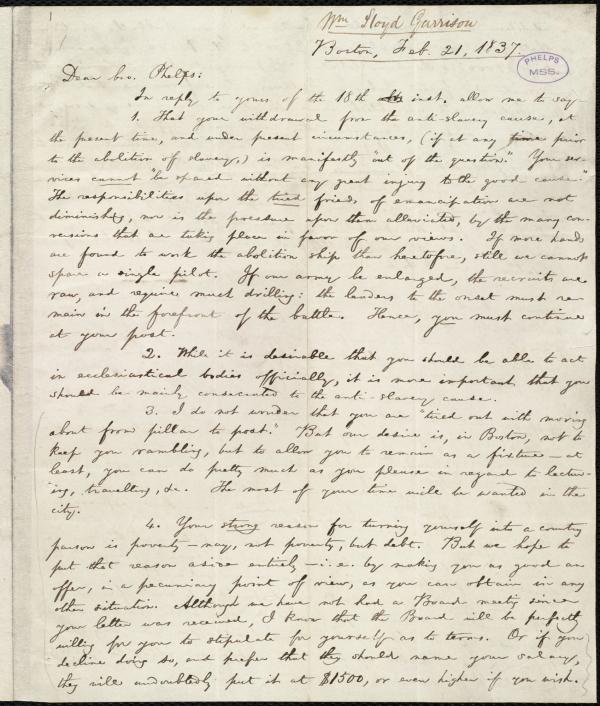 Wm Lloyd Garrison
Boston, Feb. 21, 1837.
PHELPS
MSS.
Dear bro. Phelps:
In reply to yours of the 18th inst. allow me to say
1. That your withdrawal from the anti-slavery cause, at
the present time, and under present circumstances, (if at any time prior
to the abolition of slavery,) is manifestly "out of the question." Your ser-
vices cannot "be spared without any great injury to the good cause."
The responsibilities upon the tried friends of emancipation are not
diminished, nor is the pressure upon them alleviated, by the many con-
versions that are taking place in favor of our views. If more hands
are found to work the abolition ship than heretofore, still we cannot
spare a single pilot. If our army be enlarged, the recruits are
raw, and require much drilling: the leaders to the onset must re-
main in the forefront of the battle. Hence, you must continue
at your post.
2. While it is desirable that you should be able to act
in ecclesiastical bodies officially, it is more important that you
should be mainly consecrated to the anti-slavery cause.
3. I do not wonder that you are "tired out with moving
about from pillar to post." But our desire is, in Boston, not to
keep you rambling, but to allow you to remain as a fixture—at
least, you can do pretty much as you please in regard to lectur-
ing, travelling, &c. The most of your time will be wanted in the
city.
4. Your strong reason for turning yourself into a country
parson is poverty—nay, not poverty, but debt. But we hope to
put that reason aside entirely—i.e. by making you as good an
offer, in a pecuniary point of view, as you can obtain in any
other situation. Although we have not had a Board meeting since
your letter was received, I know that the Board will be perfectly
willing for you to stipulate for yourself as to terms. Or if you
decline doing so, and prefer that they should name your salary,
they will undoubtedly put it at $1500, or even higher if you wish.